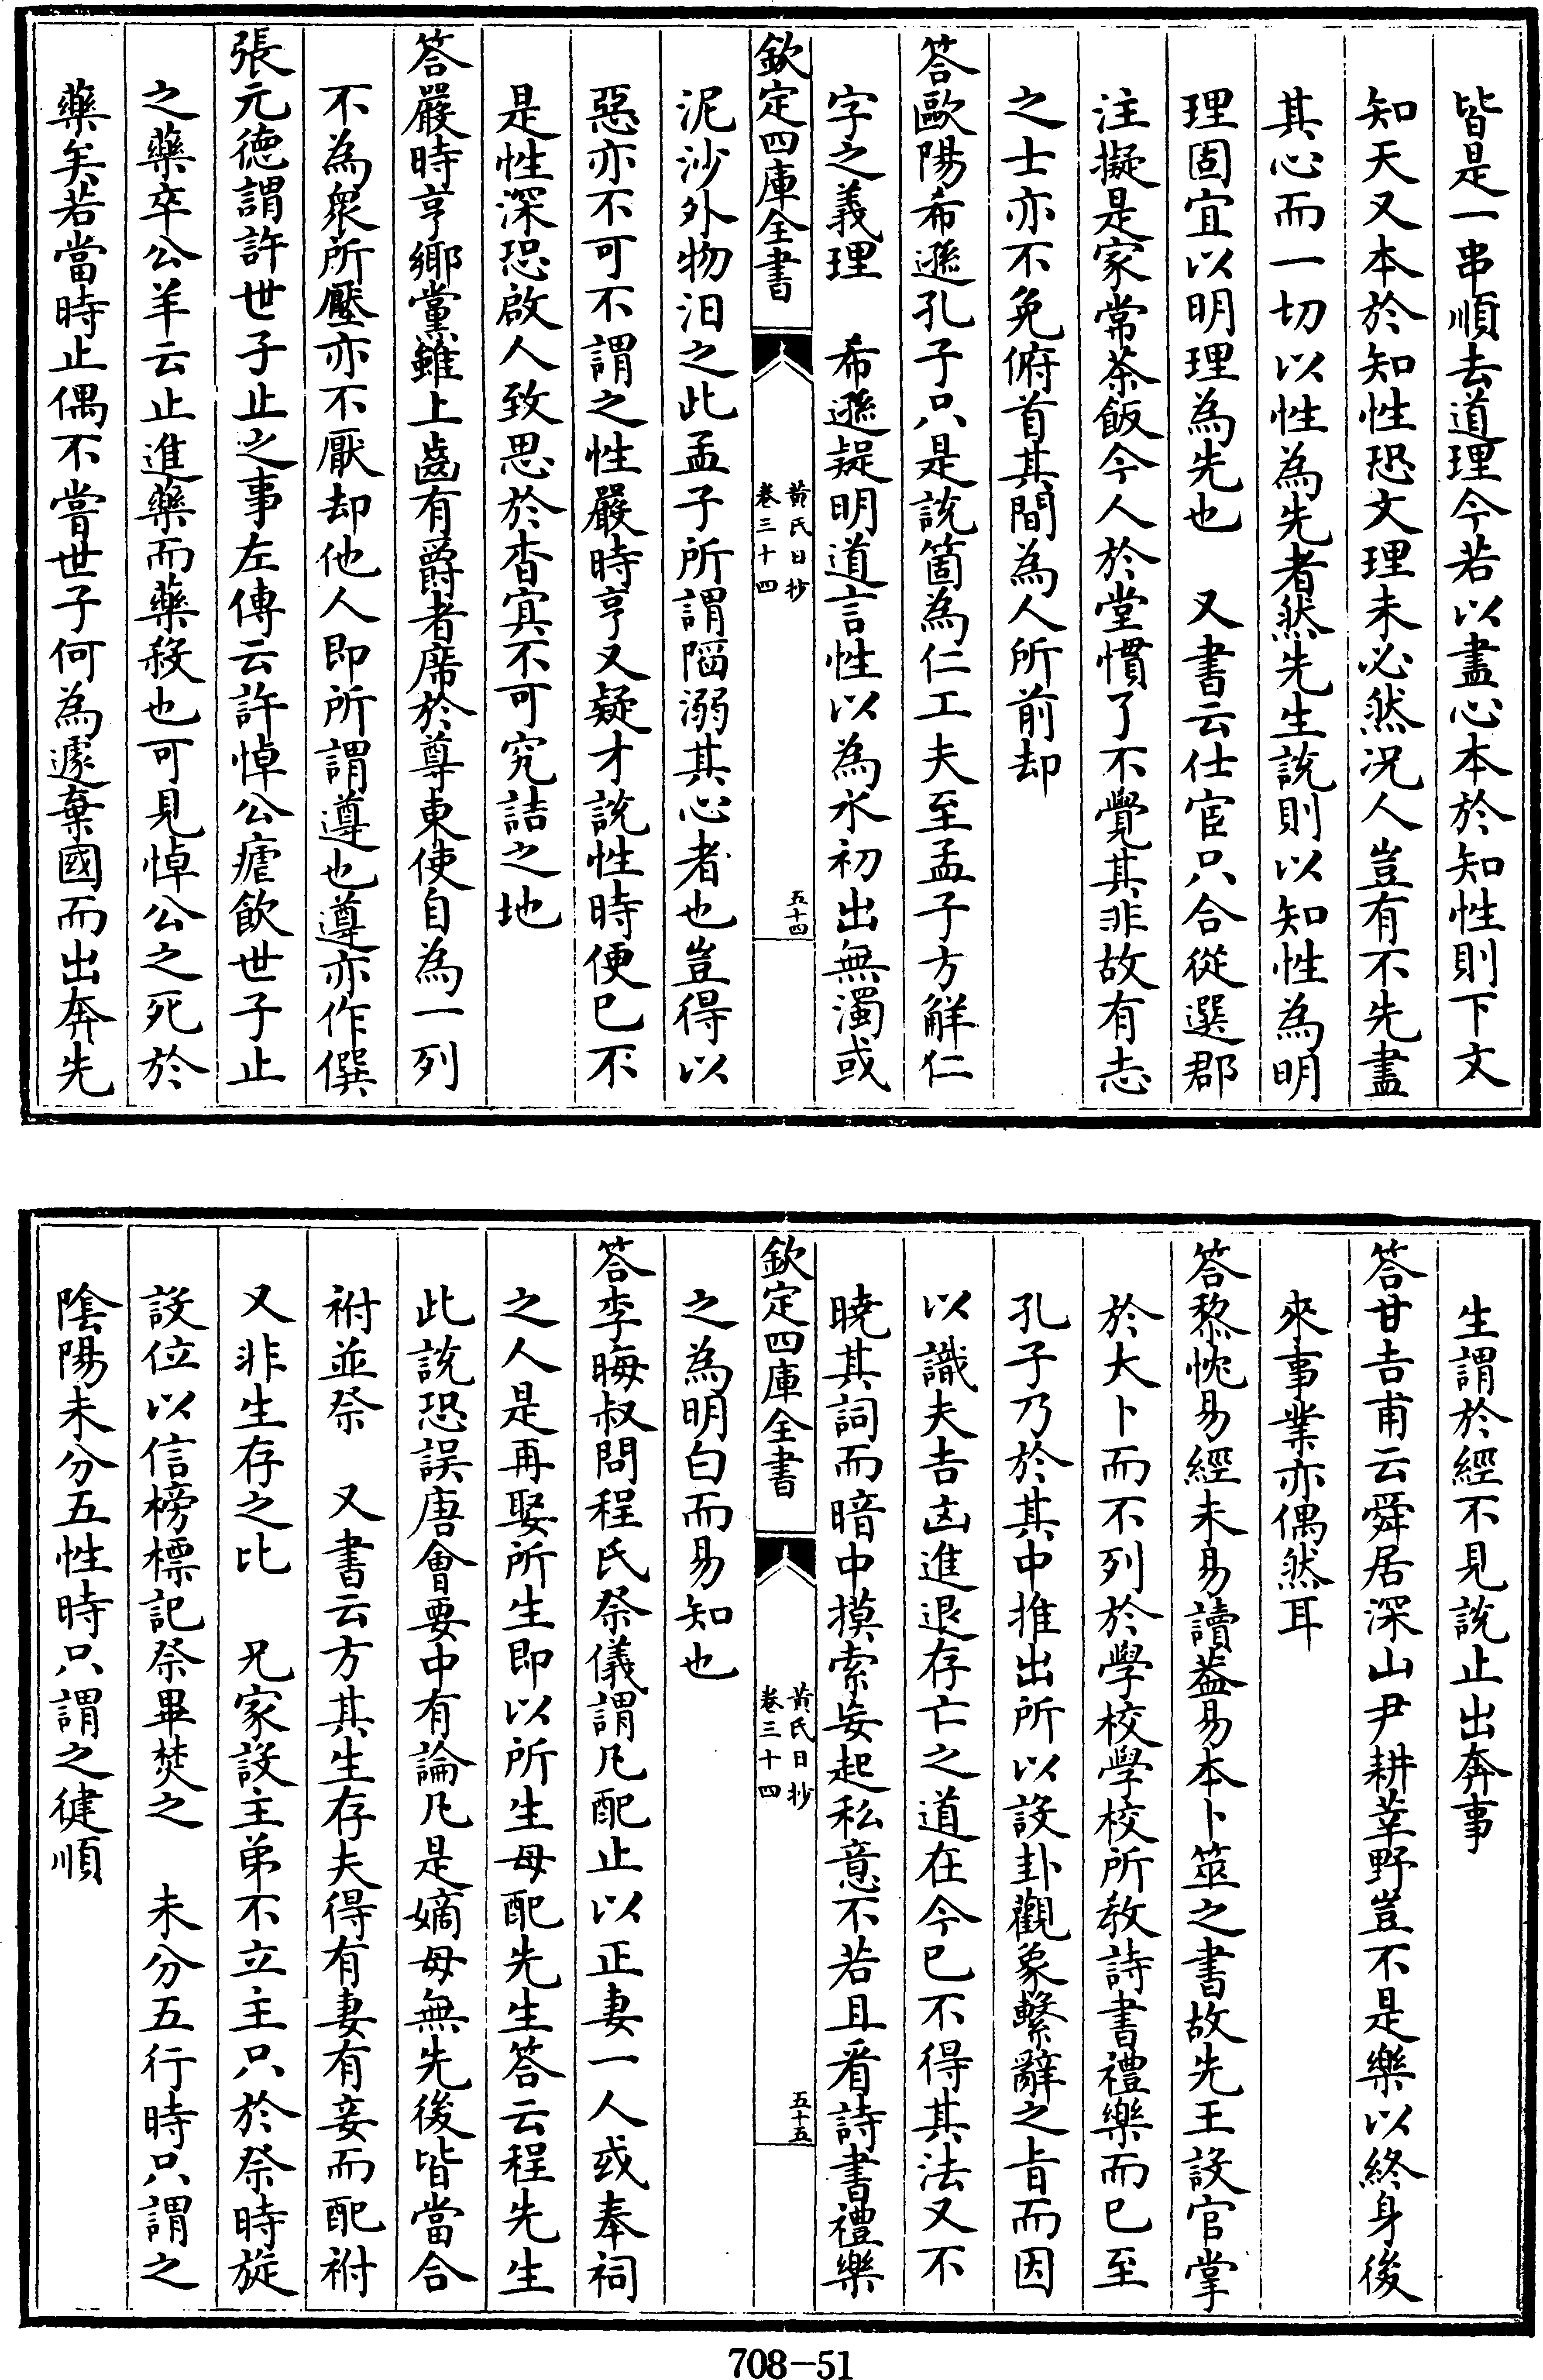 皆是一串順去道理今若以盡心本於知性則下文
知天又本於知性恐文理未必然况人豈有不先盡
其心而一切以性為先者然先生説則以知性為明
理固宜以明理為先也　又書云仕宦只合從選郡
注擬是家常茶飯今人於堂慣了不覺其非故有志
之士亦不免俯首其間為人所前却
答歐陽希遜孔子只是説箇為仁工夫至孟子方解仁
字之義理　希遜疑明道言性以為水初出無濁或
欽定四庫全書
黄氏日抄
卷三十四
五十四
泥沙外物汨之此孟子所謂陷溺其心者也豈得以
惡亦不可不謂之性嚴時亨又疑才説性時便已不
是性深恐啟人致思於杳冥不可究詰之地
答嚴時亨鄉黨雖上齒有爵者席於尊東使自為一列
不為衆所壓亦不厭却他人即所謂遵也遵亦作僎
張元德謂許世子止之事左傳云許悼公瘧飲世子止
之藥卒公羊云止進藥而藥殺也可見悼公之死於
藥矣若當時止偶不嘗世子何為遽棄國而出奔先
生謂於經不見説止出奔事
答甘吉甫云舜居深山尹耕莘野豈不是樂以終身後
來事業亦偶然耳
答黎㤞易經未易讀葢易本卜筮之書故先王設官掌
於大卜而不列於學校學校所教詩書禮樂而已至
孔子乃於其中推出所以設卦觀象繫辭之旨而因
以識夫吉凶進退存亡之道在今已不得其法又不
曉其詞而暗中摸索妄起私意不若且看詩書禮樂
欽定四庫全書
黄氏日抄
卷三十四
五十五
之為明白而易知也
答李晦叔問程氏祭儀謂凡配止以正妻一人或奉祠
之人是再娶所生即以所生母配先生答云程先生
此説恐誤唐會要中有論凡是嫡母無先後皆當合
祔並祭　又書云方其生存夫得有妻有妾而配祔
又非生存之比　兄家設主弟不立主只於祭時旋
設位以信榜標記祭畢焚之　未分五行時只謂之
隂陽未分五性時只謂之健順
708-51